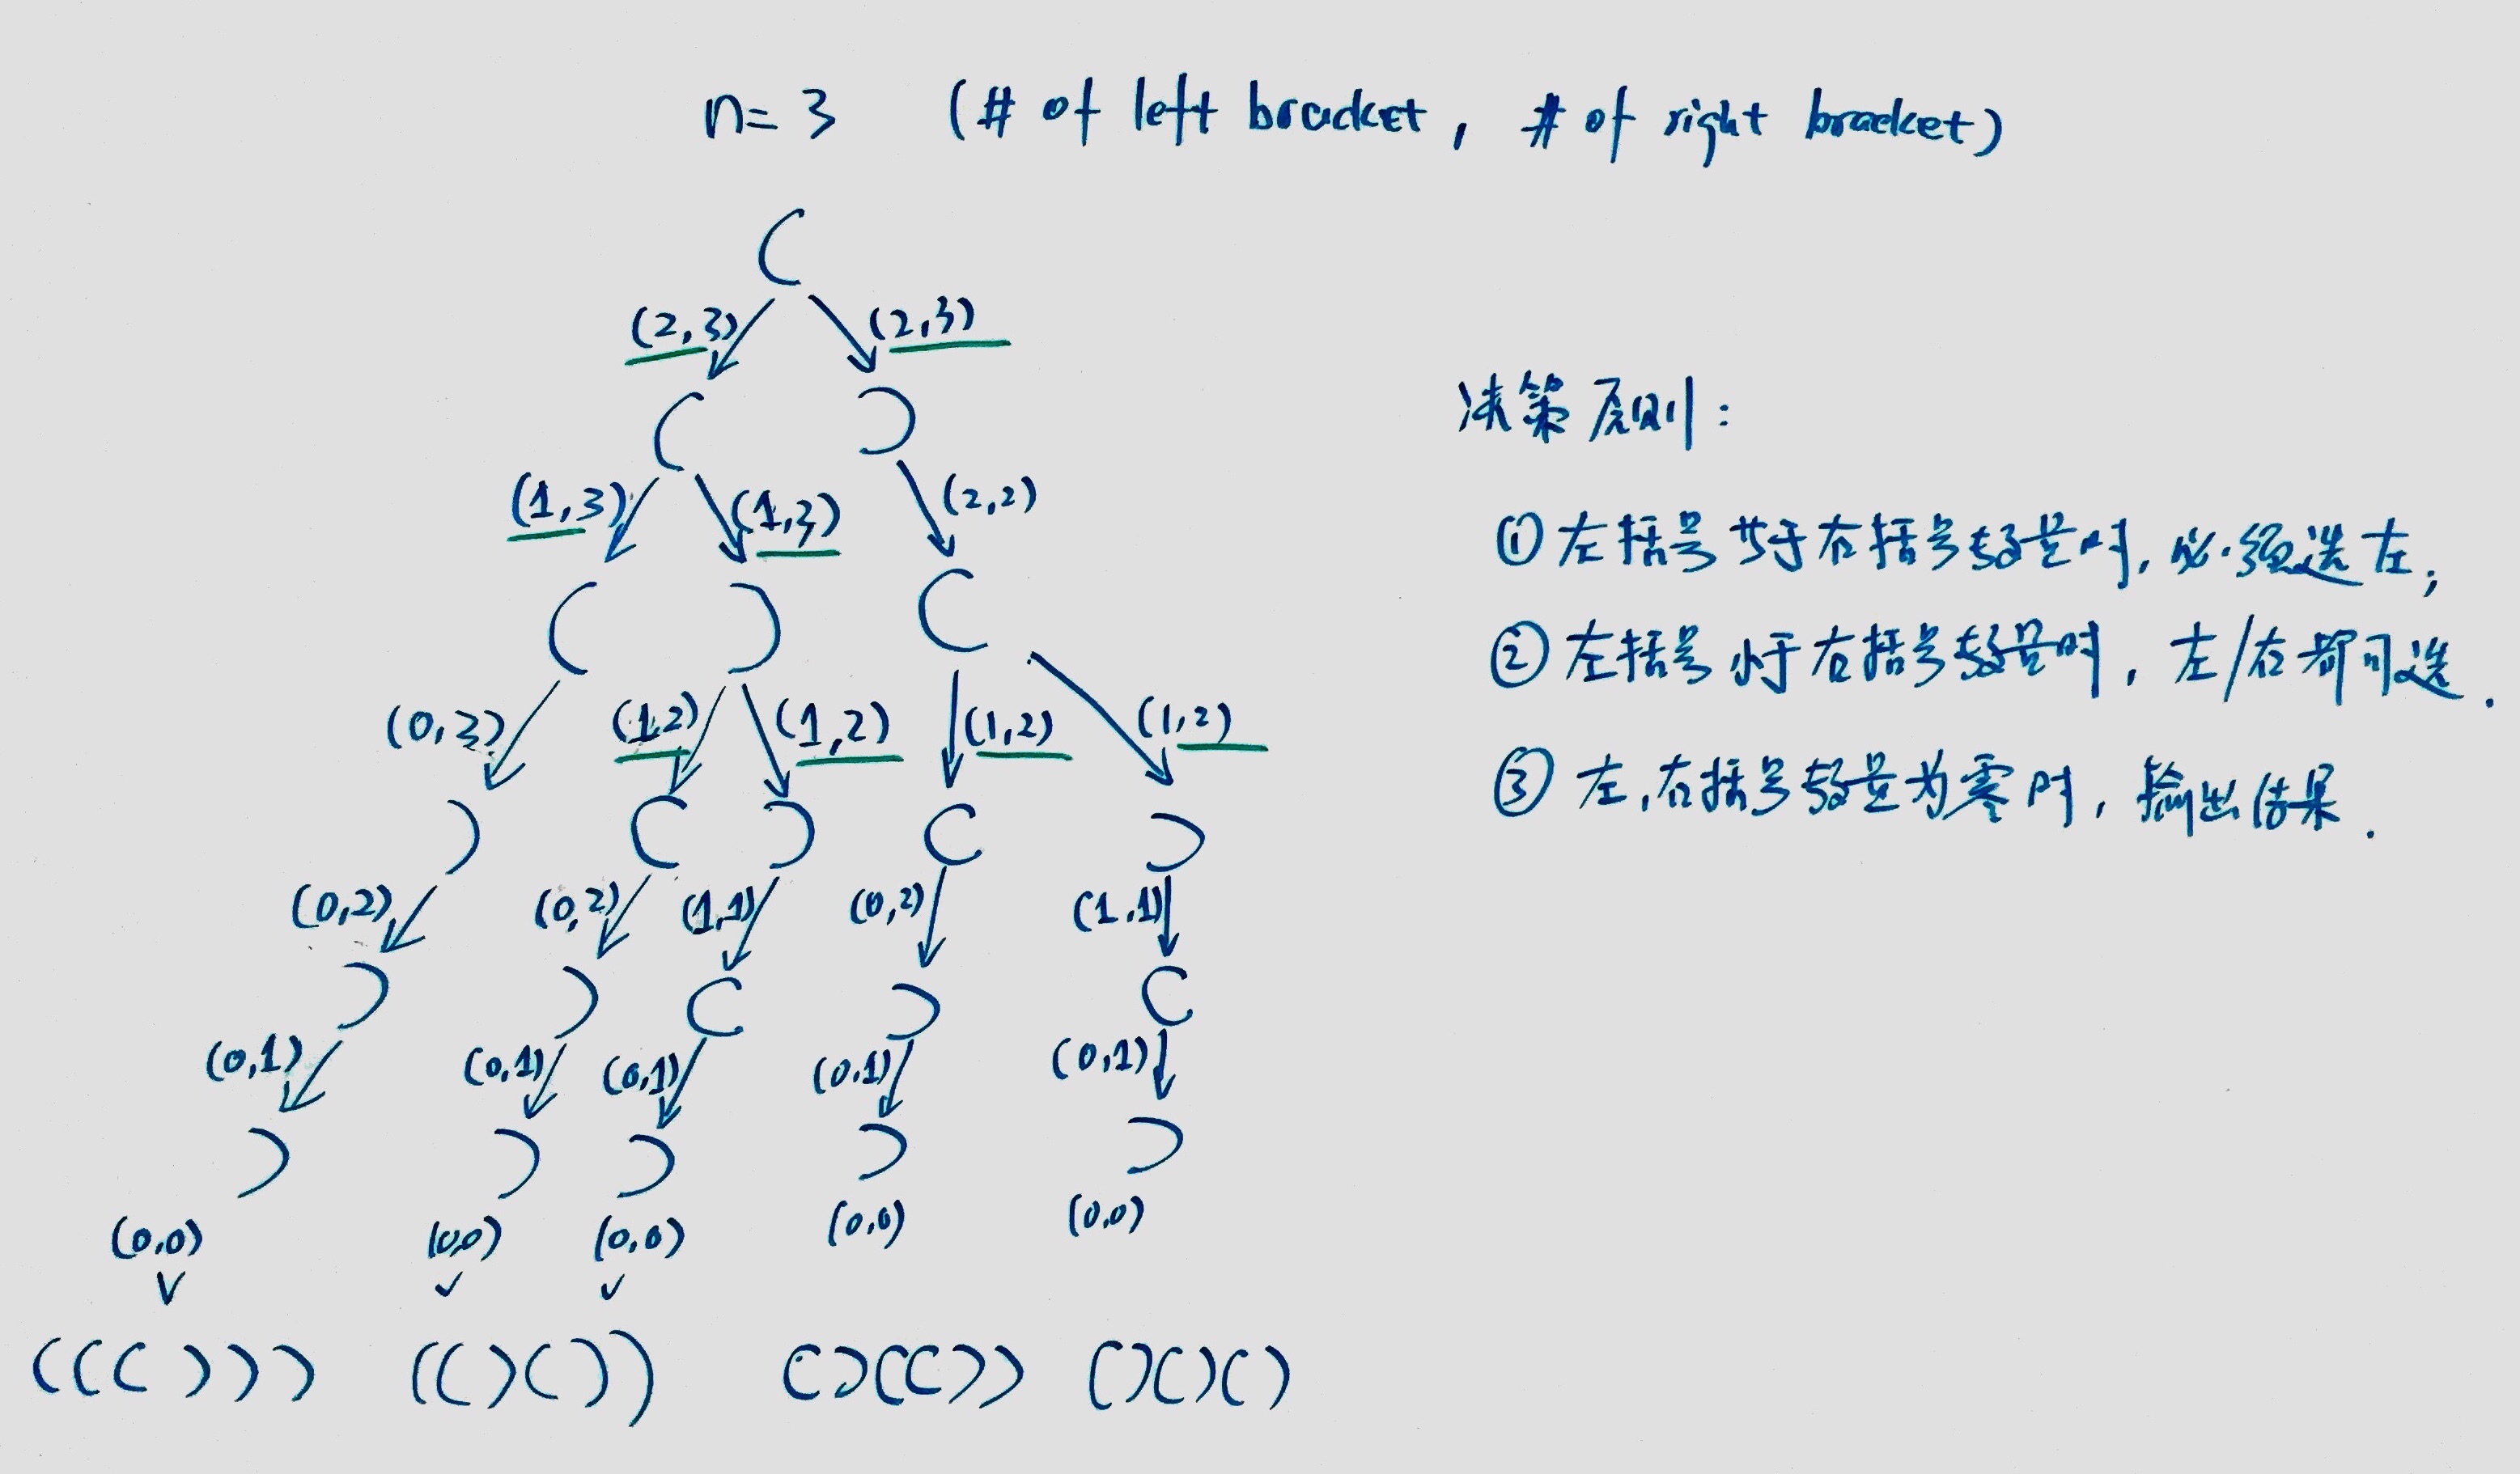 n=3 (# of left bracket, # of right bracket)
(
(2,3) (2,3)
( )
(1,3) (1,3) (2,2)
( ) (
(0,3) (1,2) (1,2) (1,2) (1,2)
) ( ) ( )
(0,2) (0,2) (1,1) (0,2) (1,1)
) ) ( ) (
(0,1) (0,1) (0,1) (0,1) (0,1)
) ) ) ) )
(0,0) (0,0) (0,0) (0,0) (0,0)
((())) (()()) ()(()) ()()()
决策原则:
① 左括号等于右括号数量时, 必须选左;
② 左括号小于右括号数量时, 左/右都可选.
③ 左,右括号数量为零时, 输出结果.